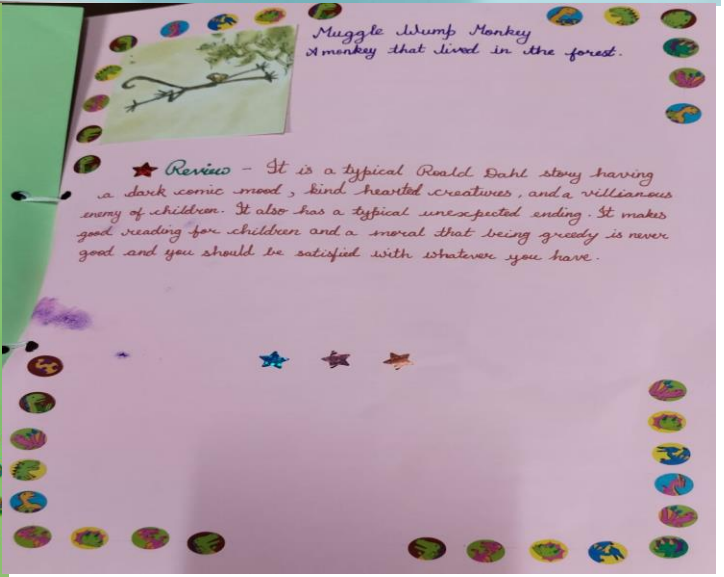 Muggle Wump Monkey
A monkey that lived in the forest.
Review - It is a typical Roald Dahl story having
a dark comic mood, kind hearted creatures, and a villianous
enemy of children. It also has a typical unexpected ending. It makes
good reading for children and a moral that being greedy is never
good and you should be satisfied with whatever you have.